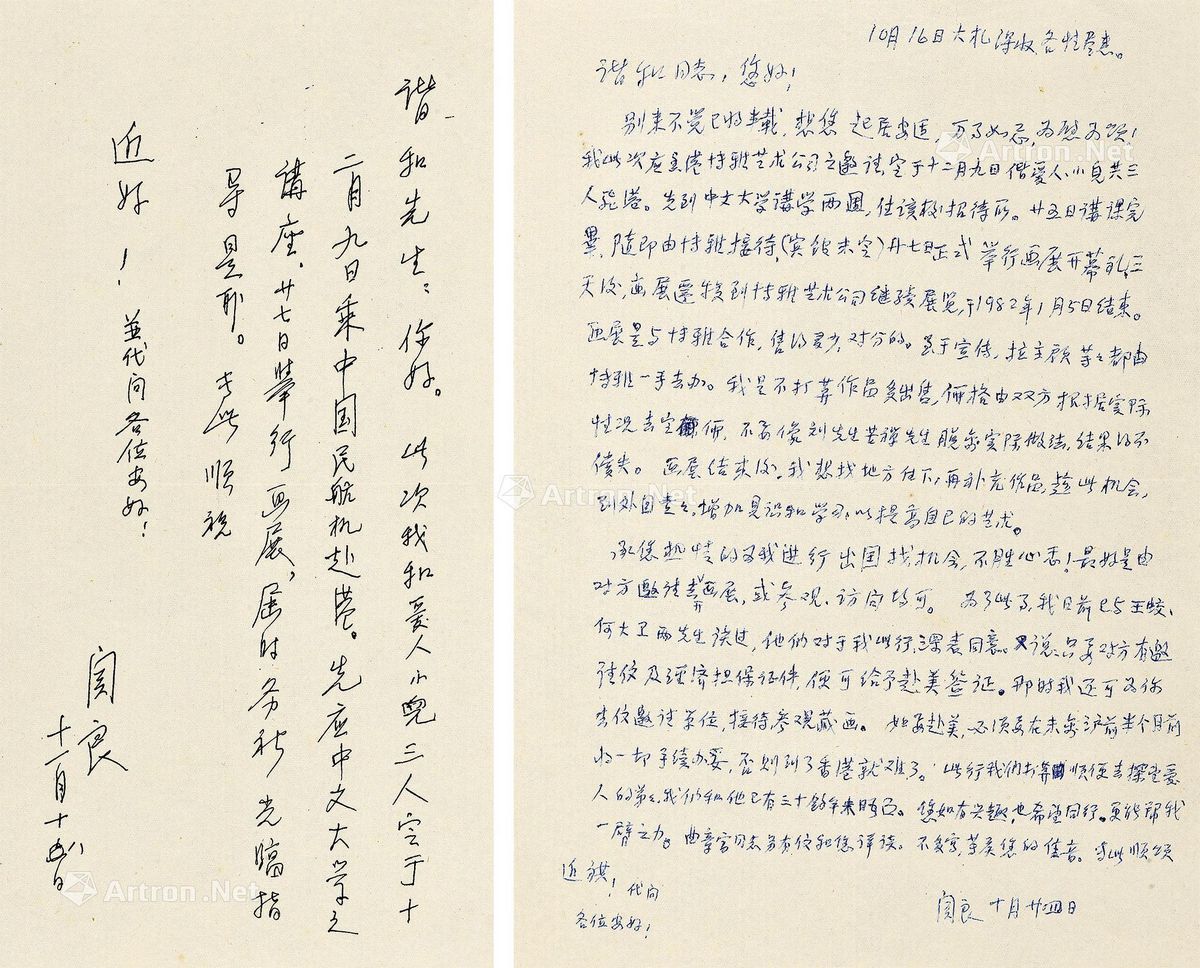 谐和先生：你好。此次我和爱人小儿三人定于十
二月九日乘中国民航机赴港。先应中文大学之
讲座，廿七日举行画展，届时务祈光临指
导是盼。专此顺祝
近好！並代问各位安好！
关良
十一月十五日
10月16日大札得收各情尽悉。
谐和同志，您好！
别来不觉已将半载，想您起居安适，万事如意为慰为颂！
我此次应香港博雅艺术公司之邀请定于十二月九日偕爱人、小儿共三
人飞港。先到中文大学講学两週，住该校招待所。廿五日講课完
畢，随即由博雅接待，(宾馆未定)廿七日正式举行画展开幕礼，三
天后，画展迁移到博雅艺术公司继续展览，于1982年1月5日结束。
画展是与博雅合作，售得多少，对分的。至于宣传，拉主顾等等都由
博雅一手去办。我是不打算作品多出售，価格由双方根据实际
情况去定価，不要像刘先生苦禅先生脱离实际做法，结果得不
偿失。画展结束后，我想找地方住下，再补充作品，趁此机会，
到外国走走，增加见识和学习，以提高自己的艺术。
承您热情的为我进行出国找机会，不胜心悉！最好是由
对方邀请去开画展，或参观、访问均可。为了此事，我日前已与王蛟、
何大卫两先生谈过，他们对于我此行，深表同意。又说，只要对方有邀
请信及经济担保证件，便可给予赴美签证。那时我还可为你
去信邀请单位，接待参观藏画。如要赴美，必须要在未离沪前半个月前
将一切手续办妥，否则到了香港就难了。此行我们打算顺便去探望爱
人的弟弟，我们和他已有三十馀年未晤面。您如有兴趣，也希望同行。更能帮我
一臂之力。曲章富同志另有信和您详谈。不多写，等候您的佳音。专此顺颂
近祺！代问
各位安好！
关良 十月廿四日
Artron.Net
Artron.Net
Artron.Net
Artron.Net